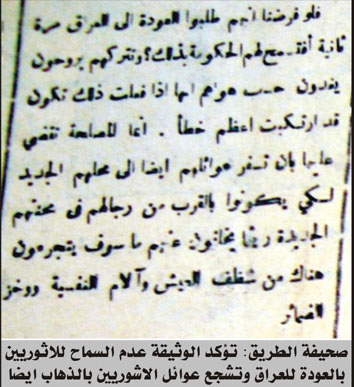 فلو فرضنا انهم طلبوا العودة الى العراق مرة
ثانية أفتسمح لهم الحكومة بذلك؟ وتتركهم يروحون
يغدون حسب هواهم انها اذا فعلت ذلك تكون
قد ارتكبت اعظم خطأ . انما المصلحة تقضي
عليها بان تسفر عوائلهم ايضا الى محلهم الجديد
لكي يكونوا بالقرب من رجالهم في
الجديدة عنهم ما سوف يتجرعون
هناك من شظف العيش وآلام النفسية ووخز
الضمائر
صحيفة الطريق: تؤكد الوثيقة عدم السماح للاثوريين
بالعودة للعراق وتشجع عوائل الاشوريين بالذهاب ايضا